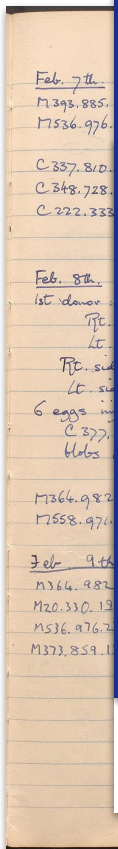 Feb. 7th.
M393.885.
M536.976.
C337.810.
C348.728.
C222.333
Feb. 8th.
1st donor :
Rt.
Lt.
Rt. sid
Lt. si
6 eggs in
C377.
blobs
M364.982
M558.971
Feb 9th
M364.982
M20.330.19
M536.976.2
M373.859.1